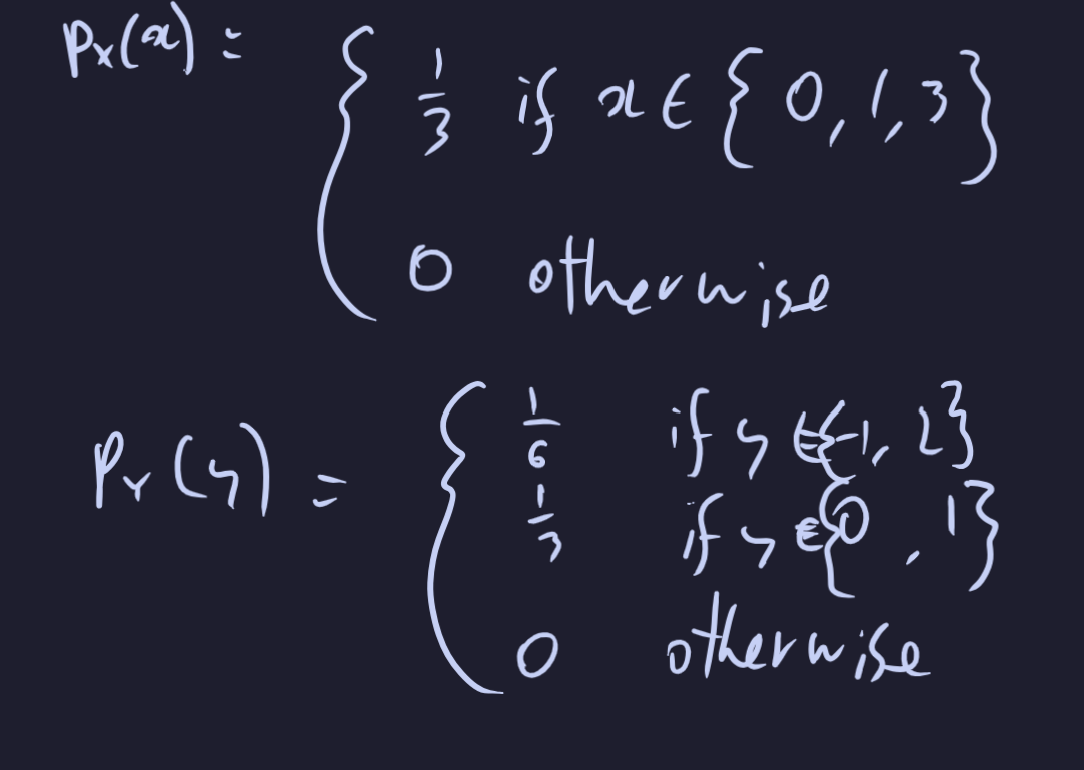 p_X(x) = { 1/3 if x ∈ {0, 1, 3}
0 otherwise
p_Y(y) = { 1/6 if y ∈ {-1, 2}
1/3 if y ∈ {0, 1}
0 otherwise